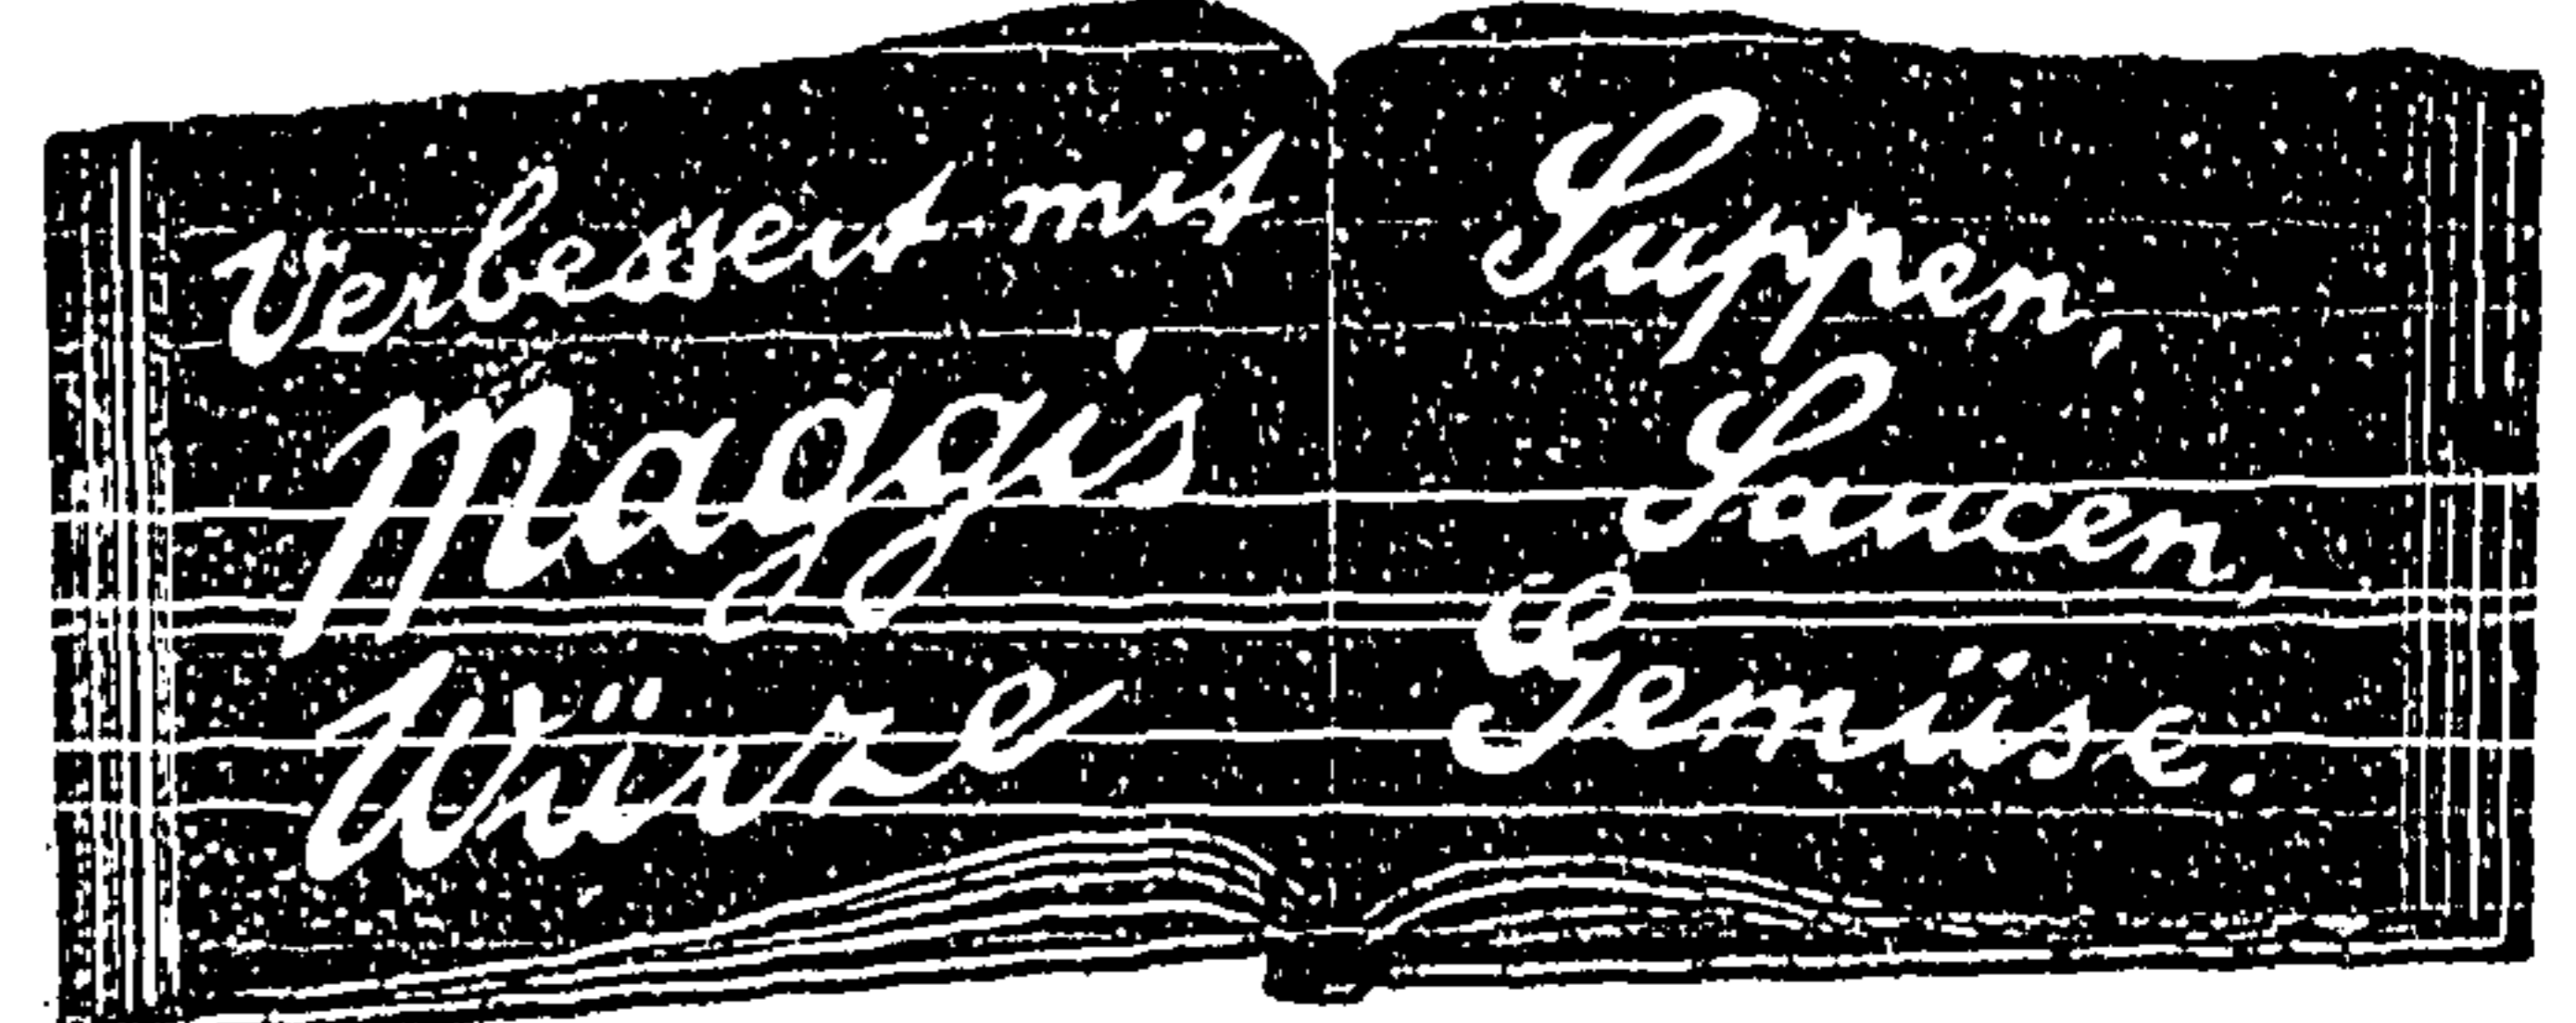 Verbessert mit
Maggi's
Würze
Suppen,
Saucen,
Gemüse.